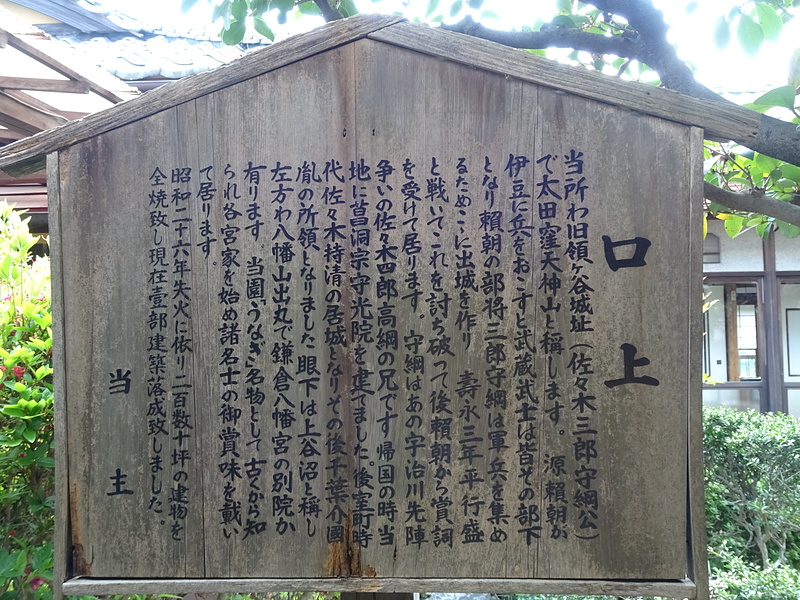 口上
当所わ旧領ヶ谷城址（佐々木三郎守綱公）
で太田窪天神山と稱します。源頼朝が
伊豆に兵をおこすと武蔵武士は皆その部下
となり頼朝の部将三郎守綱は軍兵を集め
るためこに出城を作り 壽永三年平行盛
と戦いこれを討ち破って後頼朝から賞詞
を受けて居ります 守綱はあの宇治川先陣
争いの佐々木四郎高綱の兄です 帰国の時当
地に菖洞宗守光院を建てました。後室町時
代佐々木持清の居城となりその後千葉介國
胤の所領となりました 眼下は上谷沼と稱し
左方わ八幡山出丸で鎌倉八幡宮の別院か
有ります。当園“うなぎ”名物として古くから知
られ各宮家を始め諸名士の御賞味を戴い
て居ります。
昭和二十六年失火に依り二百数十坪の建物を
全焼致し現在壹部建築落成致しました。
当主